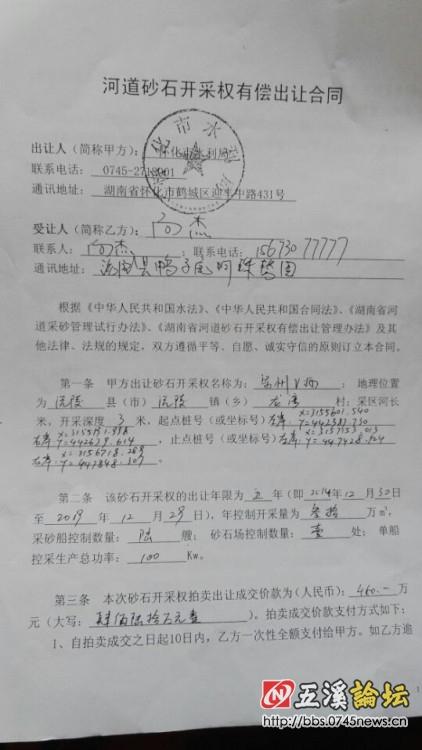 河道砂石开采权有偿出让合同
出让人（简称甲方）：怀化市水利局
联系电话：0745-27
通讯地址：湖南省怀化市鹤城区迎丰中路431号
受让人（简称乙方）：向杰
联系人：向杰；联系电话：15673077777
通讯地址：沅陵县鸭子
根据《中华人民共和国水法》、《中华人民共和国合同法》、《湖南省河
道采砂管理试行办法》、《湖南省河道砂石开采权有偿出让管理办法》及其
他法律、法规的规定，双方遵循平等、自愿、诚实守信的原则订立本合同。
第一条 甲方出让砂石开采权名称为：；地理位置
为沅陵县（市）沅陵镇（乡）村；采区河长
米，开采深度3米，起点桩号（或坐标号）左岸：X=3155601.540 Y=442381.730
右岸：Y=442639.614，止点桩号（或坐标号）左岸：Y=447428.
右岸：
第二条 该砂石开采权的出让年限为五年（即2014年12月30日
至2019年12月29日），年控制开采量为叁拾万m³，
采砂船控制数量：陆艘；砂石场控制数量：壹处；单船
控采生产总功率：100Kw。
第三条 本次砂石开采权拍卖出让成交价款为（人民币）：460.—万
元（大写：肆佰陆拾万元整），拍卖成交价款支付方式如下：
1、自拍卖成交之日起10日内，乙方一次性全额支付给甲方。如乙方逾
五溪論坛
http://bbs.0745news.cn